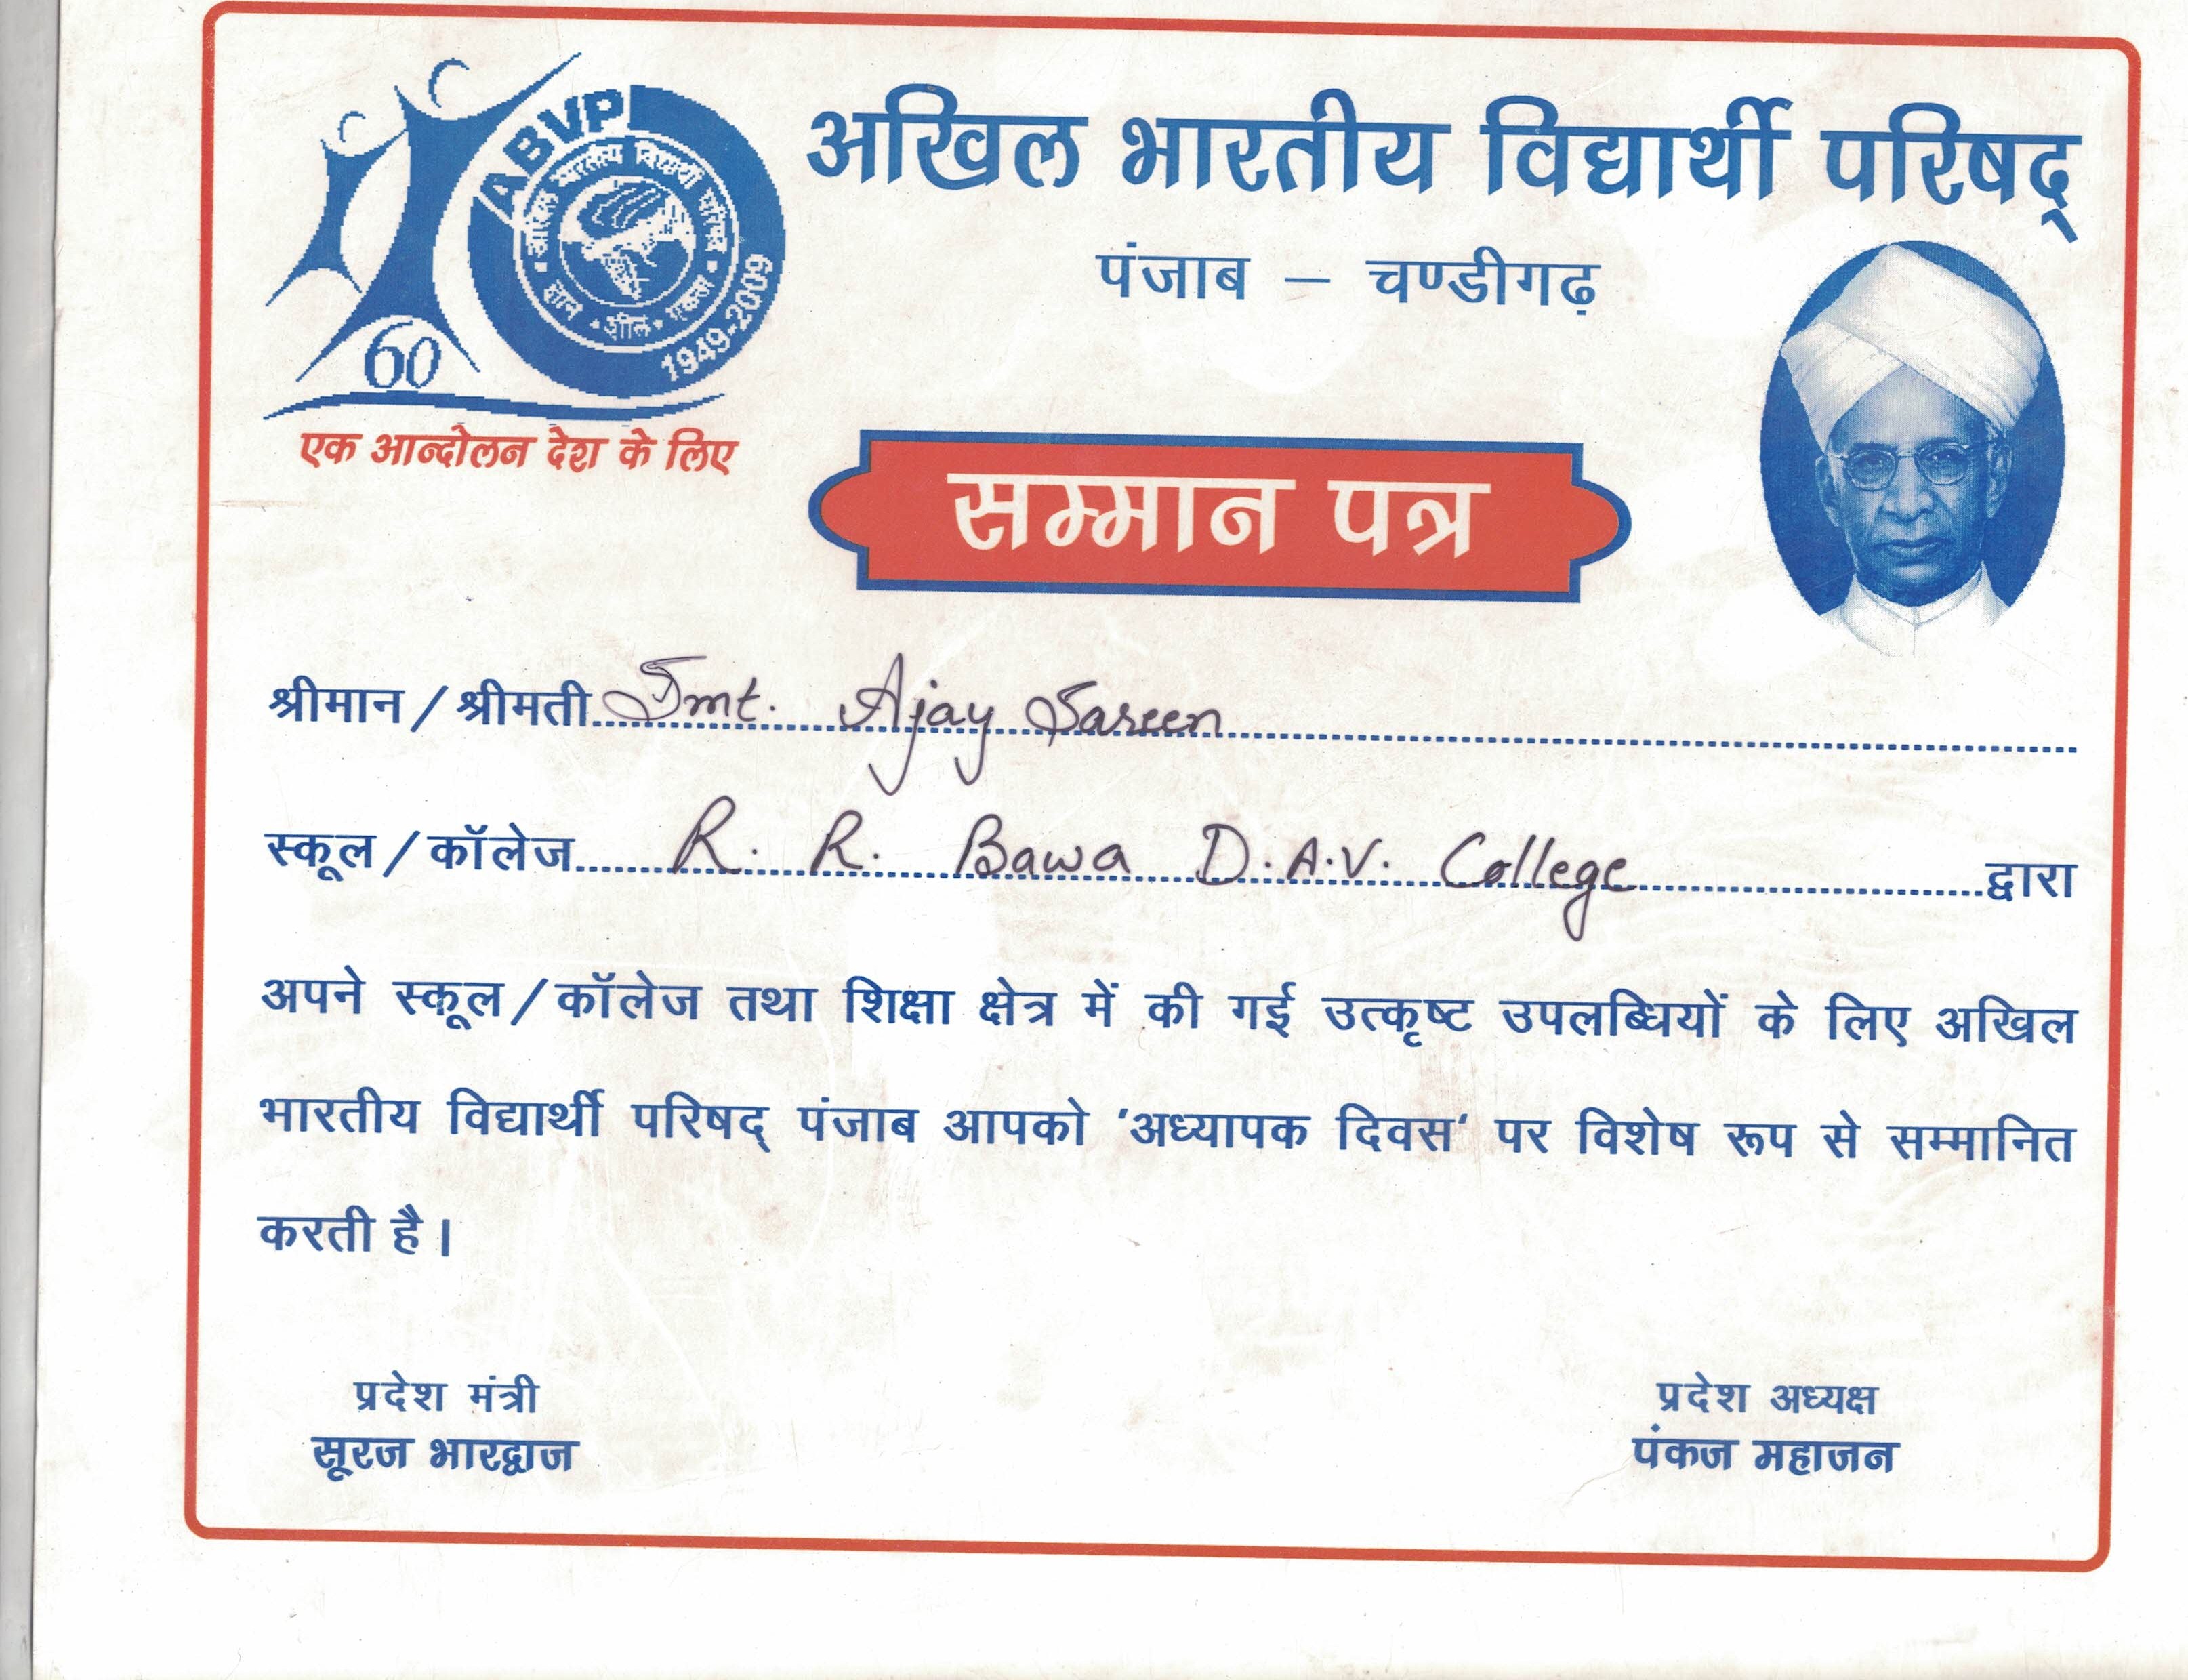 ABVP
अखिल भारतीय विद्यार्थी परिषद्
ज्ञान • शील • एकता
1949-2009
60
एक आन्दोलन देश के लिए
अखिल भारतीय विद्यार्थी परिषद्
पंजाब – चण्डीगढ़
सम्मान पत्र
श्रीमान / श्रीमती Smt. Ajay Sareen
स्कूल / कॉलेज R. R. Bawa D.A.V. College द्वारा
अपने स्कूल / कॉलेज तथा शिक्षा क्षेत्र में की गई उत्कृष्ट उपलब्धियों के लिए अखिल
भारतीय विद्यार्थी परिषद् पंजाब आपको 'अध्यापक दिवस' पर विशेष रूप से सम्मानित
करती है।
प्रदेश मंत्री
सूरज भारद्वाज
प्रदेश अध्यक्ष
पंकज महाजन